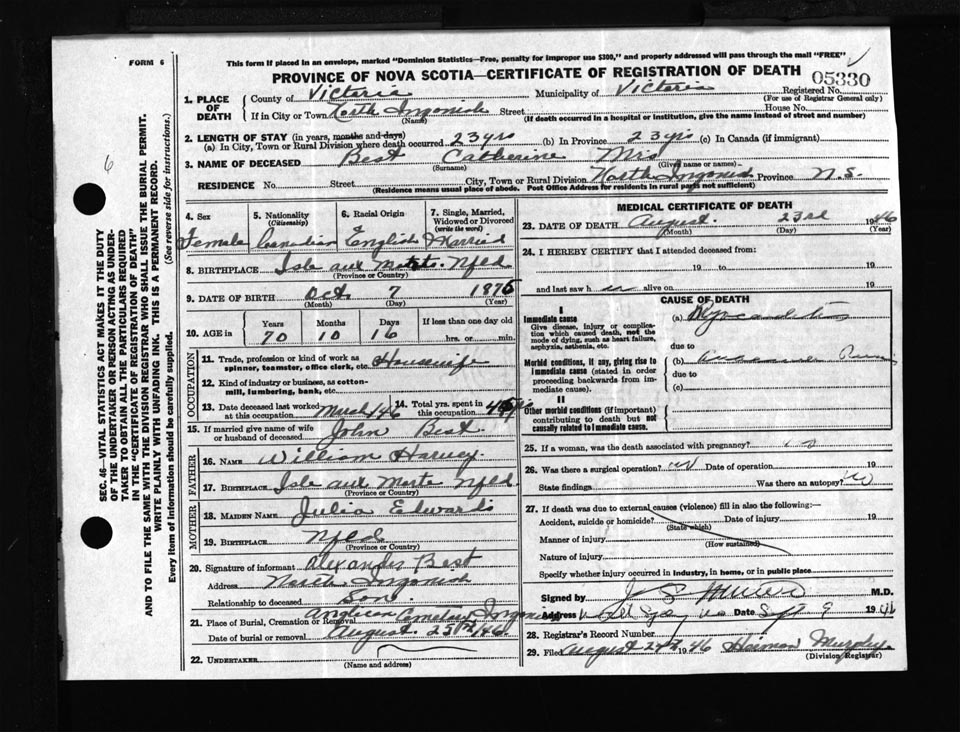 FORM 6
This form if placed in an envelope, marked "Dominion Statistics—Free, penalty for improper use $300," and properly addressed will pass through the mail "FREE"
PROVINCE OF NOVA SCOTIA—CERTIFICATE OF REGISTRATION OF DEATH
05330
6
SEC. 46—VITAL STATISTICS ACT MAKES IT THE DUTY
OF THE UNDERTAKER OR PERSON ACTING AS UNDER-
TAKER TO OBTAIN ALL THE PARTICULARS REQUIRED
IN THE "CERTIFICATE OF REGISTRATION OF DEATH"
AND TO FILE THE SAME WITH THE DIVISION REGISTRAR WHO SHALL ISSUE THE BURIAL PERMIT.
WRITE PLAINLY WITH UNFADING INK. THIS IS A PERMANENT RECORD.
Every item of information should be carefully supplied. (See reverse side for instructions.)
1. PLACE OF DEATH
County of Victoria Municipality of Victoria Registered No.
(For use of Registrar General only)
If in City or Town North Ingonish Street House No.
(Name) (If death occurred in a hospital or institution, give the name instead of street and number)
2. LENGTH OF STAY (in years, months and days)
(a) In City, Town or Rural Division where death occurred 23 yrs (b) In Province 23 yrs (c) In Canada (if immigrant)
3. NAME OF DECEASED Best Catherine Mrs
(Surname) (Given name or names)
RESIDENCE No. Street City, Town or Rural Division North Ingonish Province N.S.
(Residence means usual place of abode. Post Office Address for residents in rural parts not sufficient)
4. Sex 5. Nationality (Citizenship) 6. Racial Origin 7. Single, Married, Widowed or Divorced (write the word)
Female Canadian English Married
8. BIRTHPLACE Isle aux Morts Nfld
(Province or Country)
9. DATE OF BIRTH Oct. 7 1875
(Month) (Day) (Year)
10. AGE in Years Months Days If less than one day old
70 10 16 hrs. or min.
OCCUPATION
11. Trade, profession or kind of work as spinner, teamster, office clerk, etc. Housewife
12. Kind of industry or business, as cotton-mill, lumbering, bank, etc.
13. Date deceased last worked at this occupation March/46 14. Total yrs. spent in this occupation
15. If married give name of wife or husband of deceased John Best.
FATHER
16. NAME William Harvey
17. BIRTHPLACE Isle aux Morts Nfld
(Province or Country)
MOTHER
18. MAIDEN NAME Julia Edwards
19. BIRTHPLACE Nfld
(Province or Country)
20. Signature of informant Alexander Best
Address North Ingonish
Relationship to deceased Son.
21. Place of Burial, Cremation or Removal Anglican Cemetery Ingonish
Date of burial or removal August 25th/46
22. UNDERTAKER
(Name and address)
MEDICAL CERTIFICATE OF DEATH
23. DATE OF DEATH August. 23rd 1946
(Month) (Day) (Year)
24. I HEREBY CERTIFY that I attended deceased from:
19 to 19
and last saw h alive on 19
CAUSE OF DEATH
I
Immediate cause
Give disease, injury or complication which caused death, not the mode of dying, such as heart failure, asphyxia, asthenia, etc.
(a)
due to
Morbid conditions, if any, giving rise to immediate cause (stated in order proceeding backwards from immediate cause).
(b)
due to
(c)
II
Other morbid conditions (if important) contributing to death but not causally related to immediate cause.
25. If a woman, was the death associated with pregnancy? no
26. Was there a surgical operation? no Date of operation 19
State findings Was there an autopsy? no
27. If death was due to external causes (violence) fill in also the following:—
Accident, suicide or homicide? Date of injury 19
(State which)
Manner of injury
(How sustained)
Nature of injury
Specify whether injury occurred in industry, in home, or in public place
Signed by M.D.
Address Date Sept 9 1946
28. Registrar's Record Number
29. Filed August 1946 Murphy
(Division Registrar)